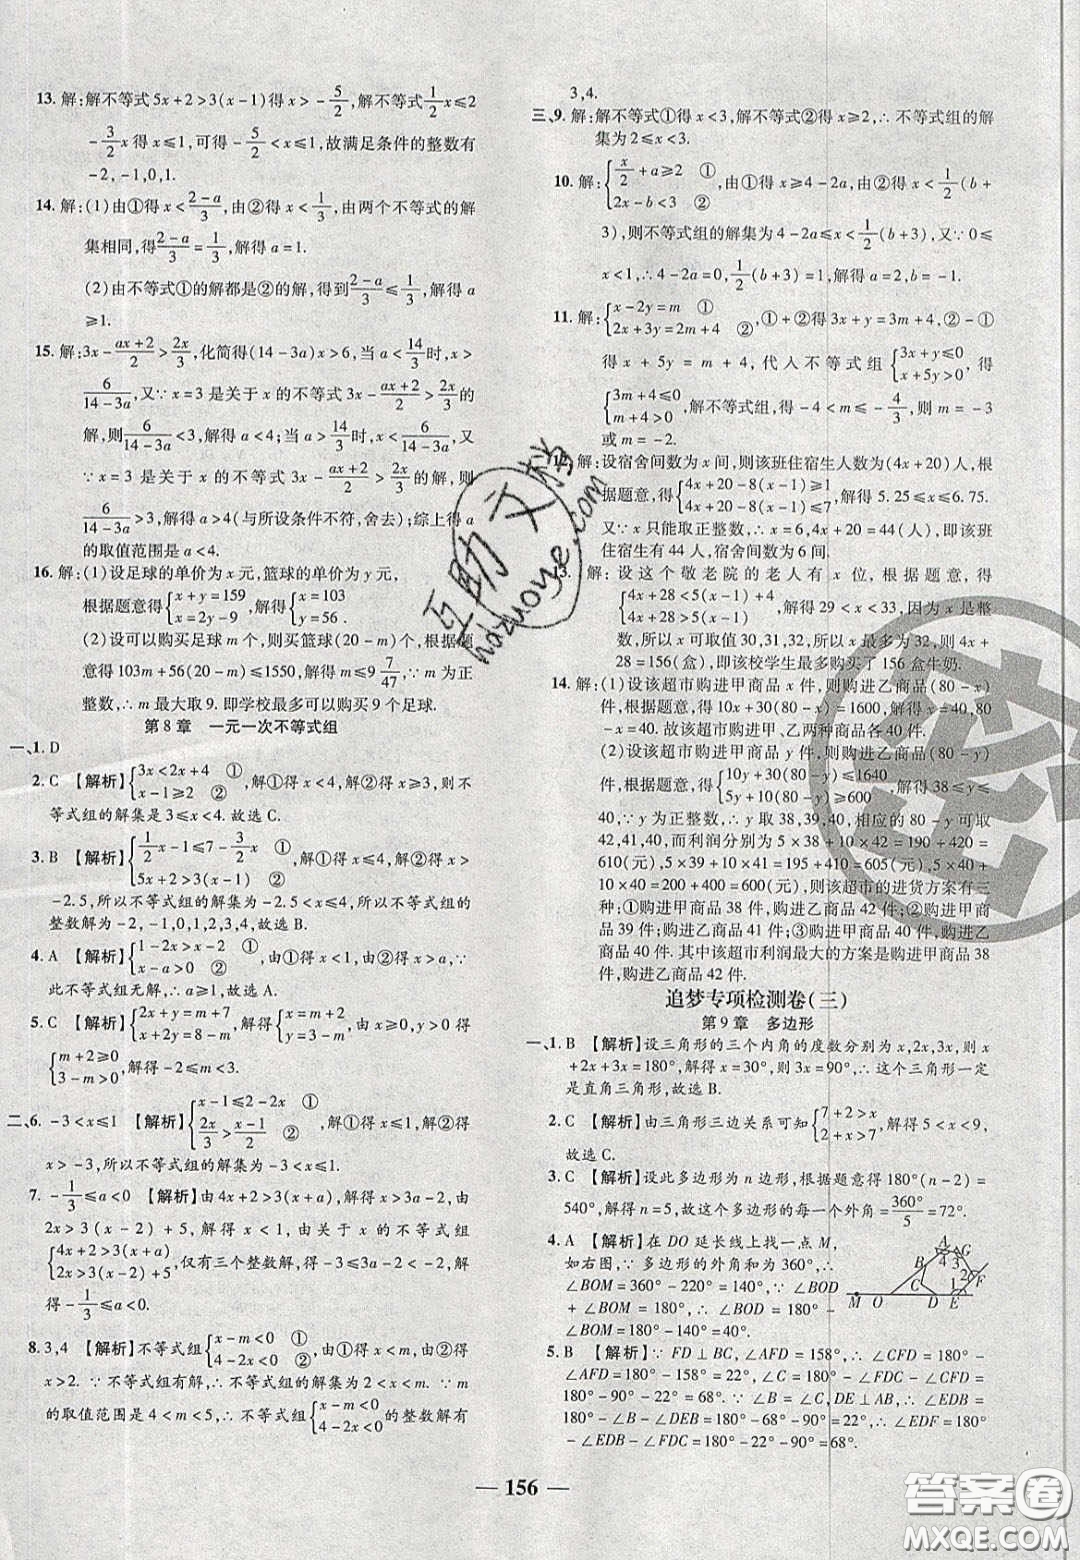 13. 解:解不等式5x+2>3(x-1)得x>-5/2,解不等式1/2x≤2
-3/2x得x≤1,可得-5/2<x≤1,故满足条件的整数有
-2,-1,0,1.
14. 解:(1)由①得x<(2-a)/3,由②得x<1/3,由两个不等式的解
集相同,得(2-a)/3=1/3,解得a=1.
(2)由不等式①的解都是②的解,得到(2-a)/3≤1/3,解得a
≥1.
15. 解:3x-(ax+2)/2>2x/3,化简得(14-3a)x>6,当a<14/3时,x>
6/(14-3a),又∵x=3是关于x的不等式3x-(ax+2)/2>2x/3的
解,则6/(14-3a)<3,解得a<4;当a>14/3时,x<6/(14-3a),又
∵x=3是关于x的不等式3x-(ax+2)/2>2x/3的解,则
6/(14-3a)>3,解得a>4(与所设条件不符,舍去);综上得a
的取值范围是a<4.
16. 解:(1)设足球的单价为x元,篮球的单价为y元,
根据题意得{x+y=159 x=2y-9,解得{x=103 y=56.
(2)设可以购买足球m个,则买篮球(20-m)个,根据题
意得103m+56(20-m)≤1550,解得m≤9 7/47,∵m为正
整数,∴m最大取9.即学校最多可以购买9个足球.
第8章 一元一次不等式组
一、1. D
2. C 【解析】{3x<2x+4 ① x-1≥2 ②,解①得x<4,解②得x≥3,则不
等式组的解集是3≤x<4.故选C.
3. B 【解析】{1/2x-1≤7-3/2x ① 5x+2>3(x-1) ②,解①得x≤4,解②得x>
-2.5,所以不等式组的解集为-2.5<x≤4,所以不等式组的
整数解为-2,-1,0,1,2,3,4.故选B.
4. A 【解析】{1-2x>x-2 ① x-a>0 ②,由①得x<1,由②得x>a,∵
此不等式组无解,∴a≥1.故选A.
5. C 【解析】{2x+y=m+7 ① x+2y=8-m ②,解①②得x=2+m,y=3-m得
{m+2≥0 3-m>0,解得-2≤m<3.
二、6. -3<x≤1 【解析】{x-1≤2-2x ① 2x/3>(x-1)/2 ②,由①得x≤1,由②得x
>-3,所以不等式组的解集为-3<x≤1.
7. -1/3≤a<0 【解析】由4x+2>3(x+a),解得x>3a-2,由
2x>3(x-2)+5,解得x<1,由关于x的不等式组
{4x+2>3(x+a) 2x>3(x-2)+5,仅有三个整数解,得-3≤3a-2<-2,解
得-1/3≤a<0.
8. 3,4 【解析】不等式组{x-m<0 ① 4-2x<0 ②,由①得x<m,由②得
x>2.∵不等式组有解,∴不等式组的解集为2<x<m.∵m
的取值范围是4<m<5,∴不等式组{x-m<0 4-2x<0的整数解有
3,4.
三、9. 解:解不等式①得x<3,解不等式②得x≥2,∴不等式组的解
集为2≤x<3.
10. 解:{x/2+a≥2 ① 2x-b<3 ②,由①得x≥4-2a,由②得x<1/2(b+
3),则不等式组的解集为4-2a≤x<1/2(b+3),又∵0≤
x<1,∴4-2a=0,1/2(b+3)=1,解得a=2,b=-1.
11. 解:{x-2y=m ① 2x+3y=2m+4 ②,①+②得3x+y=3m+4,②-①
得x+5y=m+4,代入不等式组{3x+y≤0 x+5y>0,得
{3m+4≤0 m+4>0,解不等式组,得-4<m≤-4/3,则m=-3
或m=-2.
12. 解:设宿舍间数为x间,则该班住宿生人数为(4x+20)人,根
据题意,得{4x+20-8(x-1)≥1 4x+20-8(x-1)≤7,解得5.25≤x≤6.75.
又∵x只能取正整数,∴x=6,4x+20=44(人),即该班
住宿生有44人,宿舍间数为6间.
13. 解:设这个敬老院的老人有x位,根据题意,得
{4x+28<5(x-1)+4 4x+28>5(x-1)+1,解得29<x<33,因为x是整
数,所以x可取值30,31,32,所以x最多为32,则4x+
28=156(盒),即该校学生最多购买了156盒牛奶.
14. 解:(1)设该超市购进甲商品x件,则购进乙商品(80-x)
件,根据题意,得10x+30(80-x)=1600,解得x=40,80
-x=40.故购进甲、乙两种商品各40件.
(2)设该超市购进甲商品y件,则购进乙商品(80-y)
件,根据题意,得{10y+30(80-y)≤1640 5y+10(80-y)≥600,解得38≤y≤
40,∵y为正整数,∴y可以取38,39,40,相应的80-y为
42,41,40.而利润分别为5×38+10×42=190+420=
610(元),5×39+10×41=195+410=605(元),5×40+
10×40=200+400=600(元),则该超市的进货方案有三
种:①购进甲商品38件,购进乙商品42件;②购进甲商品
39件,购进乙商品41件;③购进甲商品40件,购进乙商
品40件.其中该超市利润最大的方案是购进甲商品38
件,购进乙商品42件.
追梦专项检测卷(三)
第9章 多边形
一、1. B 【解析】设三角形的三个内角的度数分别为x,2x,3x,则x
+2x+3x=180°,解得x=30°,则3x=90°,∴这个三角形一定
是直角三角形,故选B.
2. C 【解析】由三角形三边关系可知{7+2>x 2+x>7,解得5<x<9,
故选C.
3. C 【解析】设此多边形为n边形,根据题意得180°(n-2)=
540°,解得n=5,故这个正多边形的每一个外角=360°/5=72°.
4. A 【解析】在DO延长线上找一点M,
如右图,∵多边形的外角和为360°,∴
∠BOM=360°-220°=140°.∵∠BOD
+∠BOM=180°,∴∠BOD=180°-
∠BOM=180°-140°=40°.
A G B 4 3 2 F C 1 M O D E
5. B 【解析】∵FD⊥BC,∠AFD=158°,∴∠CFD=180°-
∠AFD=180°-158°=22°,∴∠C=180°-∠FDC-∠CFD=
180°-90°-22°=68°.∵∠B=∠C,DE⊥AB,∴∠EDB=
180°-∠B-∠DEB=180°-68°-90°=22°,∴∠EDF=180°
-∠EDB-∠FDC=180°-22°-90°=68°.
— 156 —
互助文档
hdzuoye.com
密
答案圈
MXQE.COM